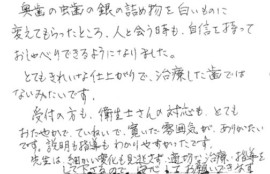 奥歯の虫歯の銀の詰め物を白いものに
変えてもらったところ、人と会う時も、自信を持って
おしゃべりできるようになりました。
とてもきれいな仕上がりで、治療した歯では
ないみたいです。
受付の方も、衛生士さんの対応も、とても
おだやかで、ていねいで、寛いだ雰囲気が、ありがたい
です。説明も指導もわかりやすかったです。
先生は、細かい変化も見逃さず、適切な治療・指導を
して下さるので、